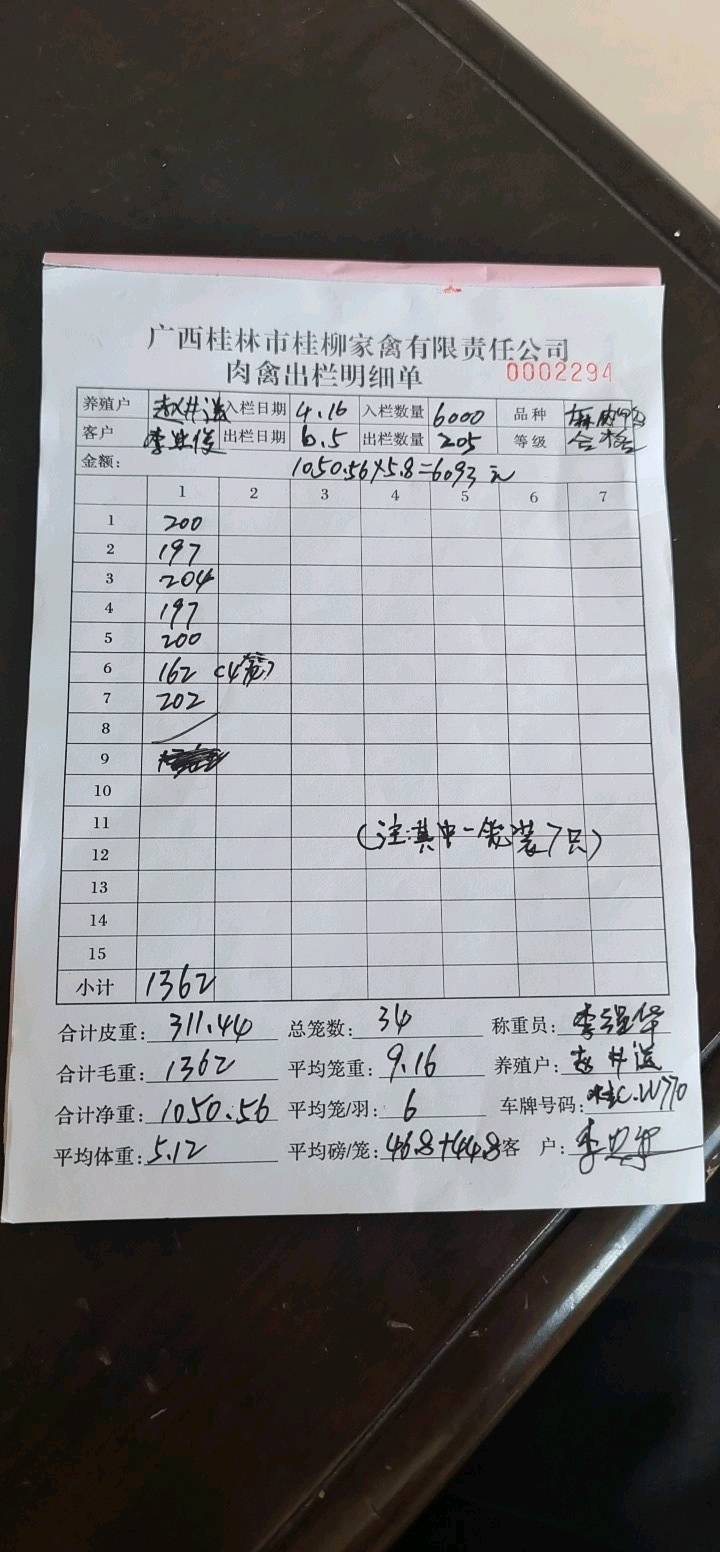 广西桂林市桂柳家禽有限责任公司
肉禽出栏明细单 0002294
养殖户 赵井送 入栏日期 4.16 入栏数量 6000 品种 麻肉鸭
客户 出栏日期 6.5 出栏数量 205 等级 合格
金额: 1050.56×5.8=6093元
1 2 3 4 5 6 7
1 200
2 197
3 204
4 197
5 200
6 162 (4笼)
7 202
8
9
10
11
12 (注:其中一笼装7只)
13
14
15
小计 1362
合计皮重: 311.44 总笼数: 34 称重员: 李强华
合计毛重: 1362 平均笼重: 9.16 养殖户: 赵井送
合计净重: 1050.56 平均笼/羽: 6 车牌号码: 桂C.W770
平均体重: 5.12 平均磅/笼: 46.8+44.8 客 户: